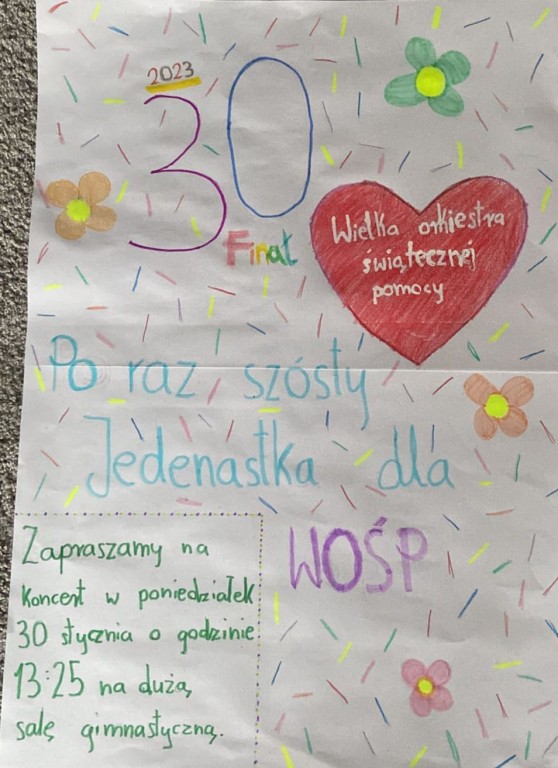 2023
30
Finał
Wielka orkiestra
świątecznej
pomocy
Po raz szósty
Jedenastka dla
WOŚP
Zapraszamy na
koncert w poniedziałek
30 stycznia o godzinie
13:25 na dużą
salę gimnastyczną.